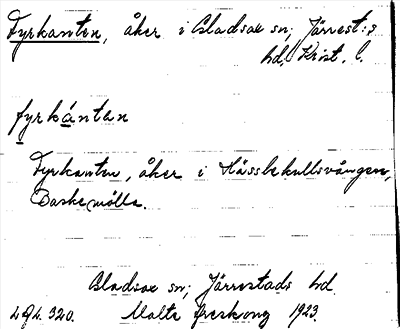 Fyrkanten, åker i Gladsax sn; Järrest:s
hd, Krist. l.
fyrkántan
Fyrkanten, åker i Hässlekullsvången,
Baskemölla.
Gladsax sn; Järrestads hd.
320. Malte 1923.